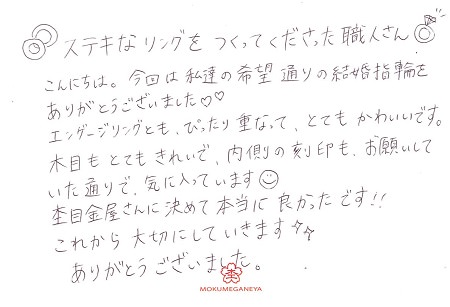 ステキなリングを つくってくださった職人さん
こんにちは。今回は私達の希望通りの結婚指輪を
ありがとうございました♡♡
エンゲージリングとも、ぴったり重なって、とてもかわいいです。
木目もとてもきれいで、内側の刻印も、お願いして
いた通りで、気に入っています☺
杢目金屋さんに決めて本当に良かったです!!
これから大切にしていきます☆☆
ありがとうございました。
MOKUMEGANEYA